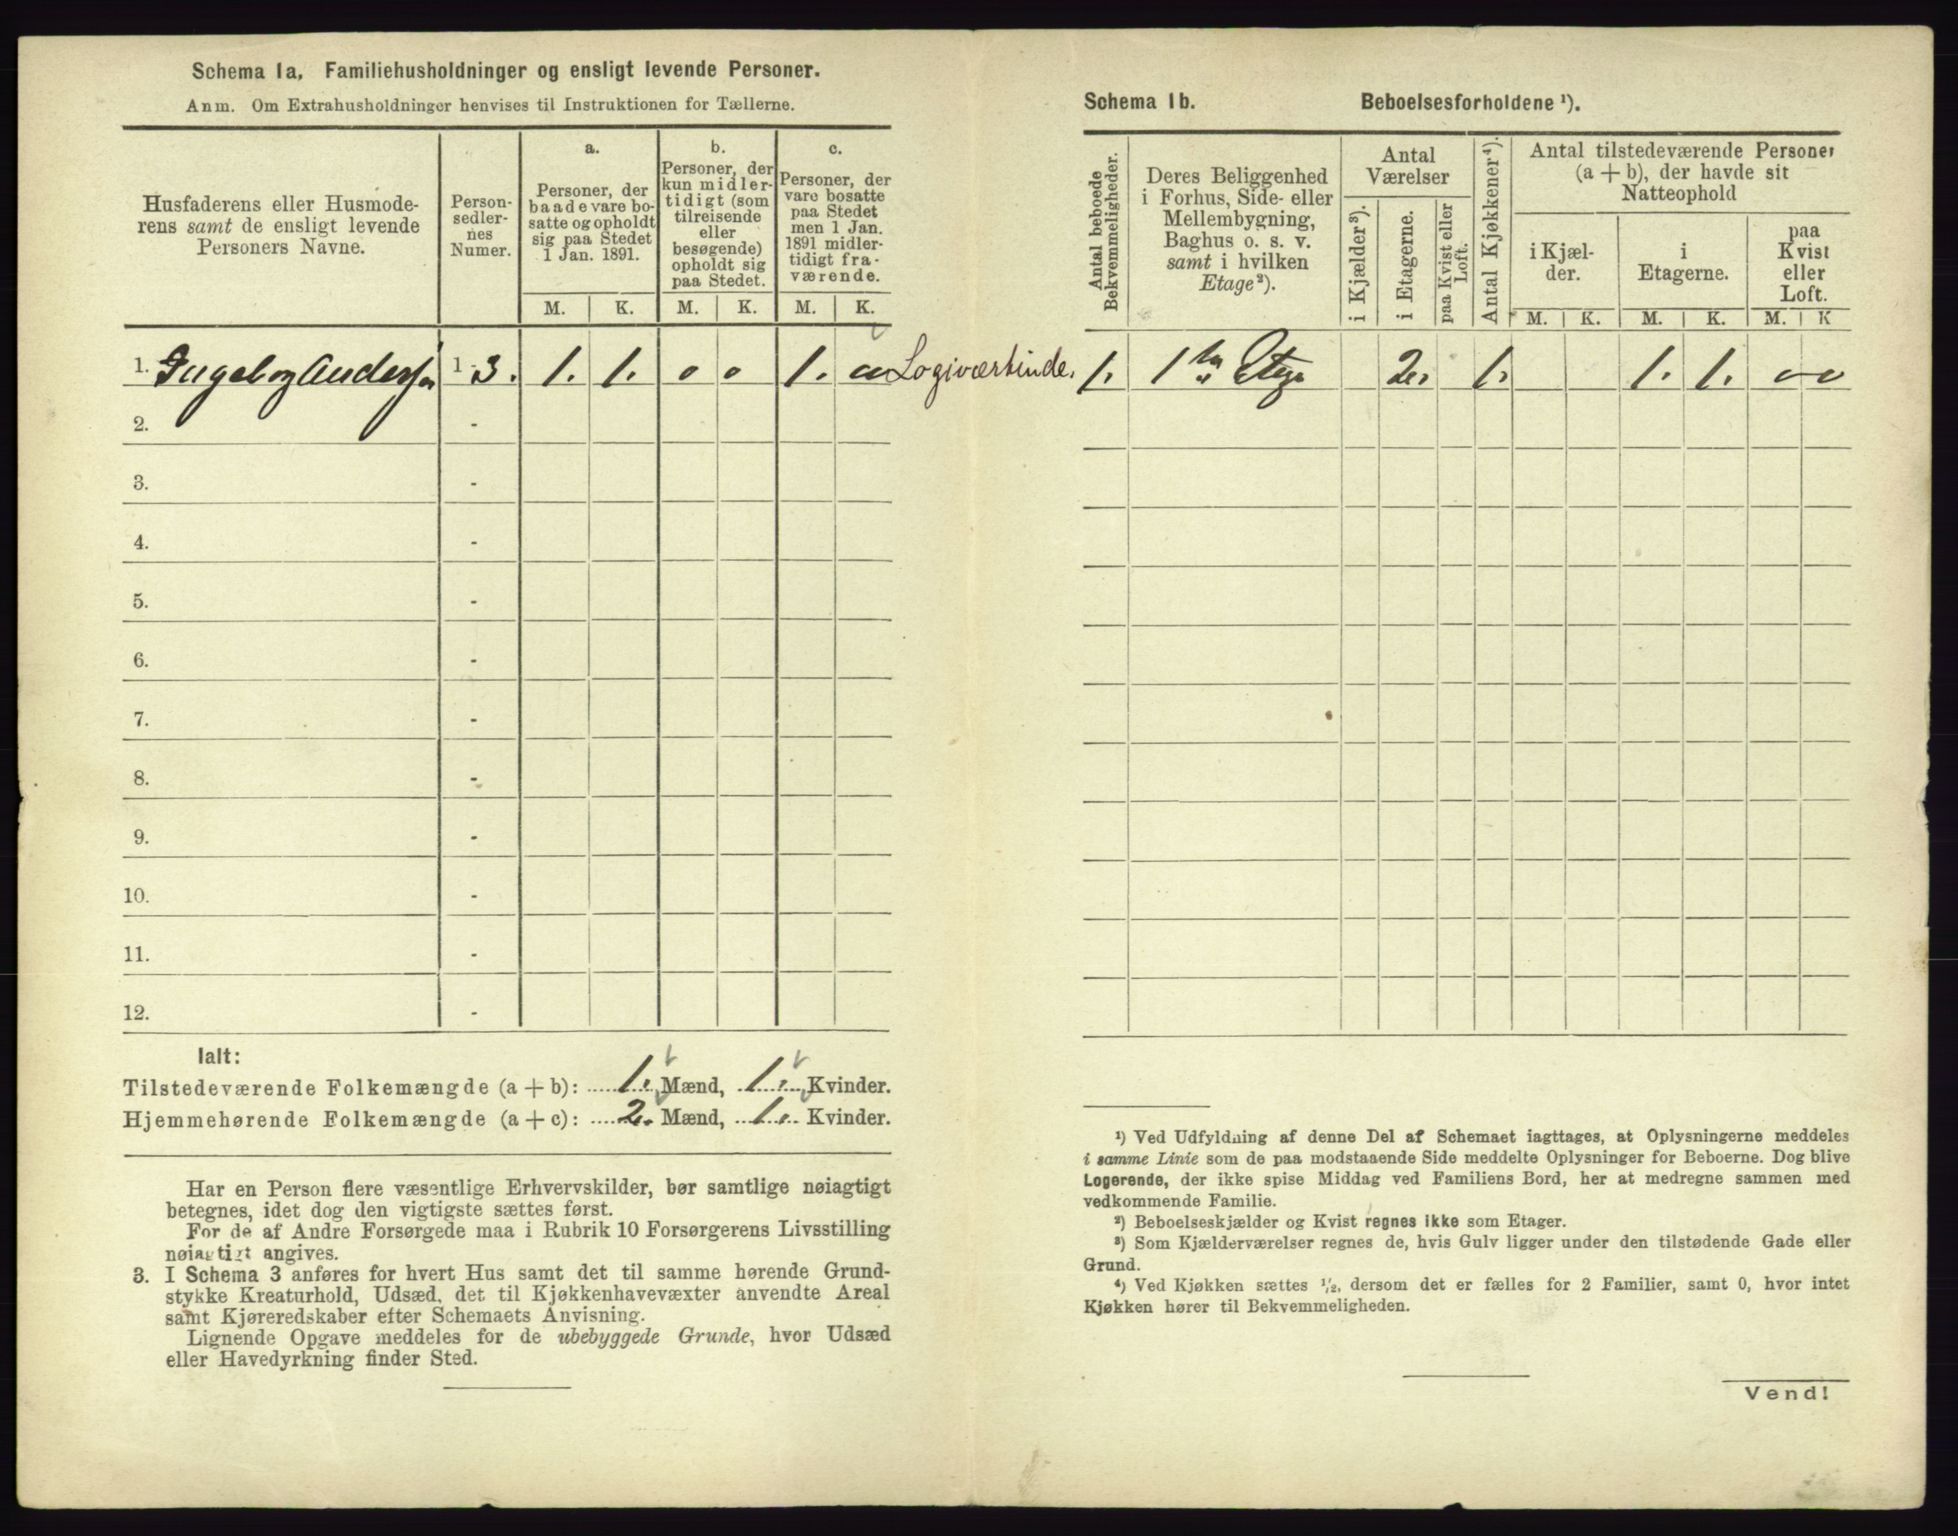 Schema 1a. Familiehusholdninger og ensligt levende Personer.
Anm. Om Extrahusholdninger henvises til Instruktionen for Tællerne.
Husfaderens eller Husmode-
rens samt de ensligt levende
Personers Navne.
Person-
sedler-
nes
Numer.
a.
Personer, der
baade vare bo-
satte og opholdt
sig paa Stedet
1 Jan. 1891.
b.
Personer, der
kun midler-
tidigt (som
tilreisende
eller
besøgende)
opholdt sig
paa Stedet.
c.
Personer, der
vare bosatte
paa Stedet
men 1 Jan.
1891 midler-
tidigt fra-
værende.
M. K. M. K. M. K.
1. Ingeborg Anderssen 1-3. 1. 1. 0 0 1. Logiværtinde.
2. -
3. -
4. -
5. -
6. -
7. -
8. -
9. -
10. -
11. -
12. -
Ialt:
Tilstedeværende Folkemængde (a + b): 1. Mænd, 1. Kvinder.
Hjemmehørende Folkemængde (a + c): 2. Mænd, 1. Kvinder.
Har en Person flere væsentlige Erhvervskilder, bør samtlige nøiagtigt
betegnes, idet dog den vigtigste sættes først.
For de af Andre Forsørgede maa i Rubrik 10 Forsørgerens Livsstilling
nøiagtigt angives.
3. I Schema 3 anføres for hvert Hus samt det til samme hørende Grund-
stykke Kreaturhold, Udsæd, det til Kjøkkenhavevæxter anvendte Areal
samt Kjøreredskaber efter Schemaets Anvisning.
Lignende Opgave meddeles for de ubebyggede Grunde, hvor Udsæd
eller Havedyrkning finder Sted.
Schema 1b. Beboelsesforholdene ¹).
Antal beboede
Bekvemmeligheder.
Deres Beliggenhed
i Forhus, Side- eller
Mellembygning,
Baghus o. s. v.
samt i hvilken
Etage ²).
Antal
Værelser
i Kjælder ³).
i Etagerne.
paa Kvist eller
Loft.
Antal Kjøkkener ⁴).
Antal tilstedeværende Personer
(a + b), der havde sit
Natteophold
i Kjæl-
der.
i
Etagerne.
paa
Kvist
eller
Loft.
M. K. M. K. M. K
1. 1ste Etage 2. 1. 1. 1. 0 0
¹) Ved Udfyldning af denne Del af Schemaet iagttages, at Oplysningerne meddeles
i samme Linie som de paa modstaaende Side meddelte Oplysninger for Beboerne. Dog blive
Logerende, der ikke spise Middag ved Familiens Bord, her at medregne sammen med
vedkommende Familie.
²) Beboelseskjælder og Kvist regnes ikke som Etager.
³) Som Kjælderværelser regnes de, hvis Gulv ligger under den tilstødende Gade eller
Grund.
⁴) Ved Kjøkken sættes ½, dersom det er fælles for 2 Familier, samt 0, hvor intet
Kjøkken hører til Bekvemmeligheden.
Vend!